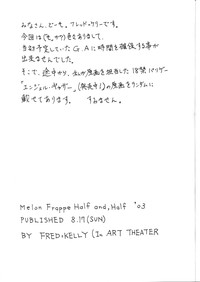 みなさん、どーも。フレッド・ケリーです。
今回は(も、か?)色々ありまして、
当初予定していたG.Aに時間を確保する事が
出来ませんでした。
そこで、途中から、私が原画を担当した18禁PCゲー
"エンジェル・ギャザー"(発売中!)の原画をランダムに
載せてあります。 すみません。
Melon Frappe Half and, Half '03
PUBLISHED 8.17(SUN)
BY FRED★KELLY (In ART THEATER